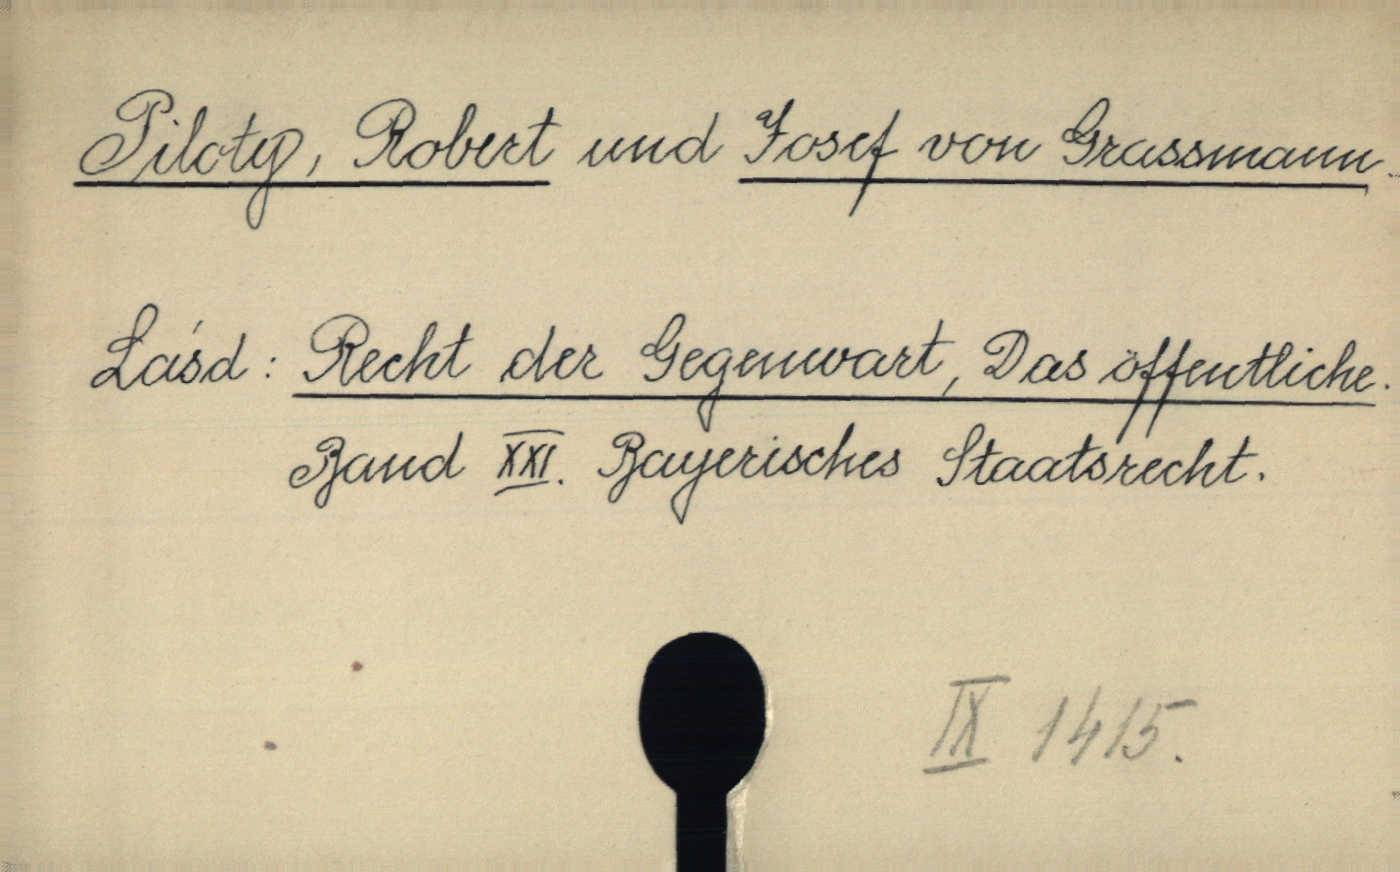 Piloty, Robert und Josef von Grassmann.
Lásd: Recht der Gegenwart, Das öffentliche.
Band XXI. Bayerisches Staatsrecht.
IX 1415.